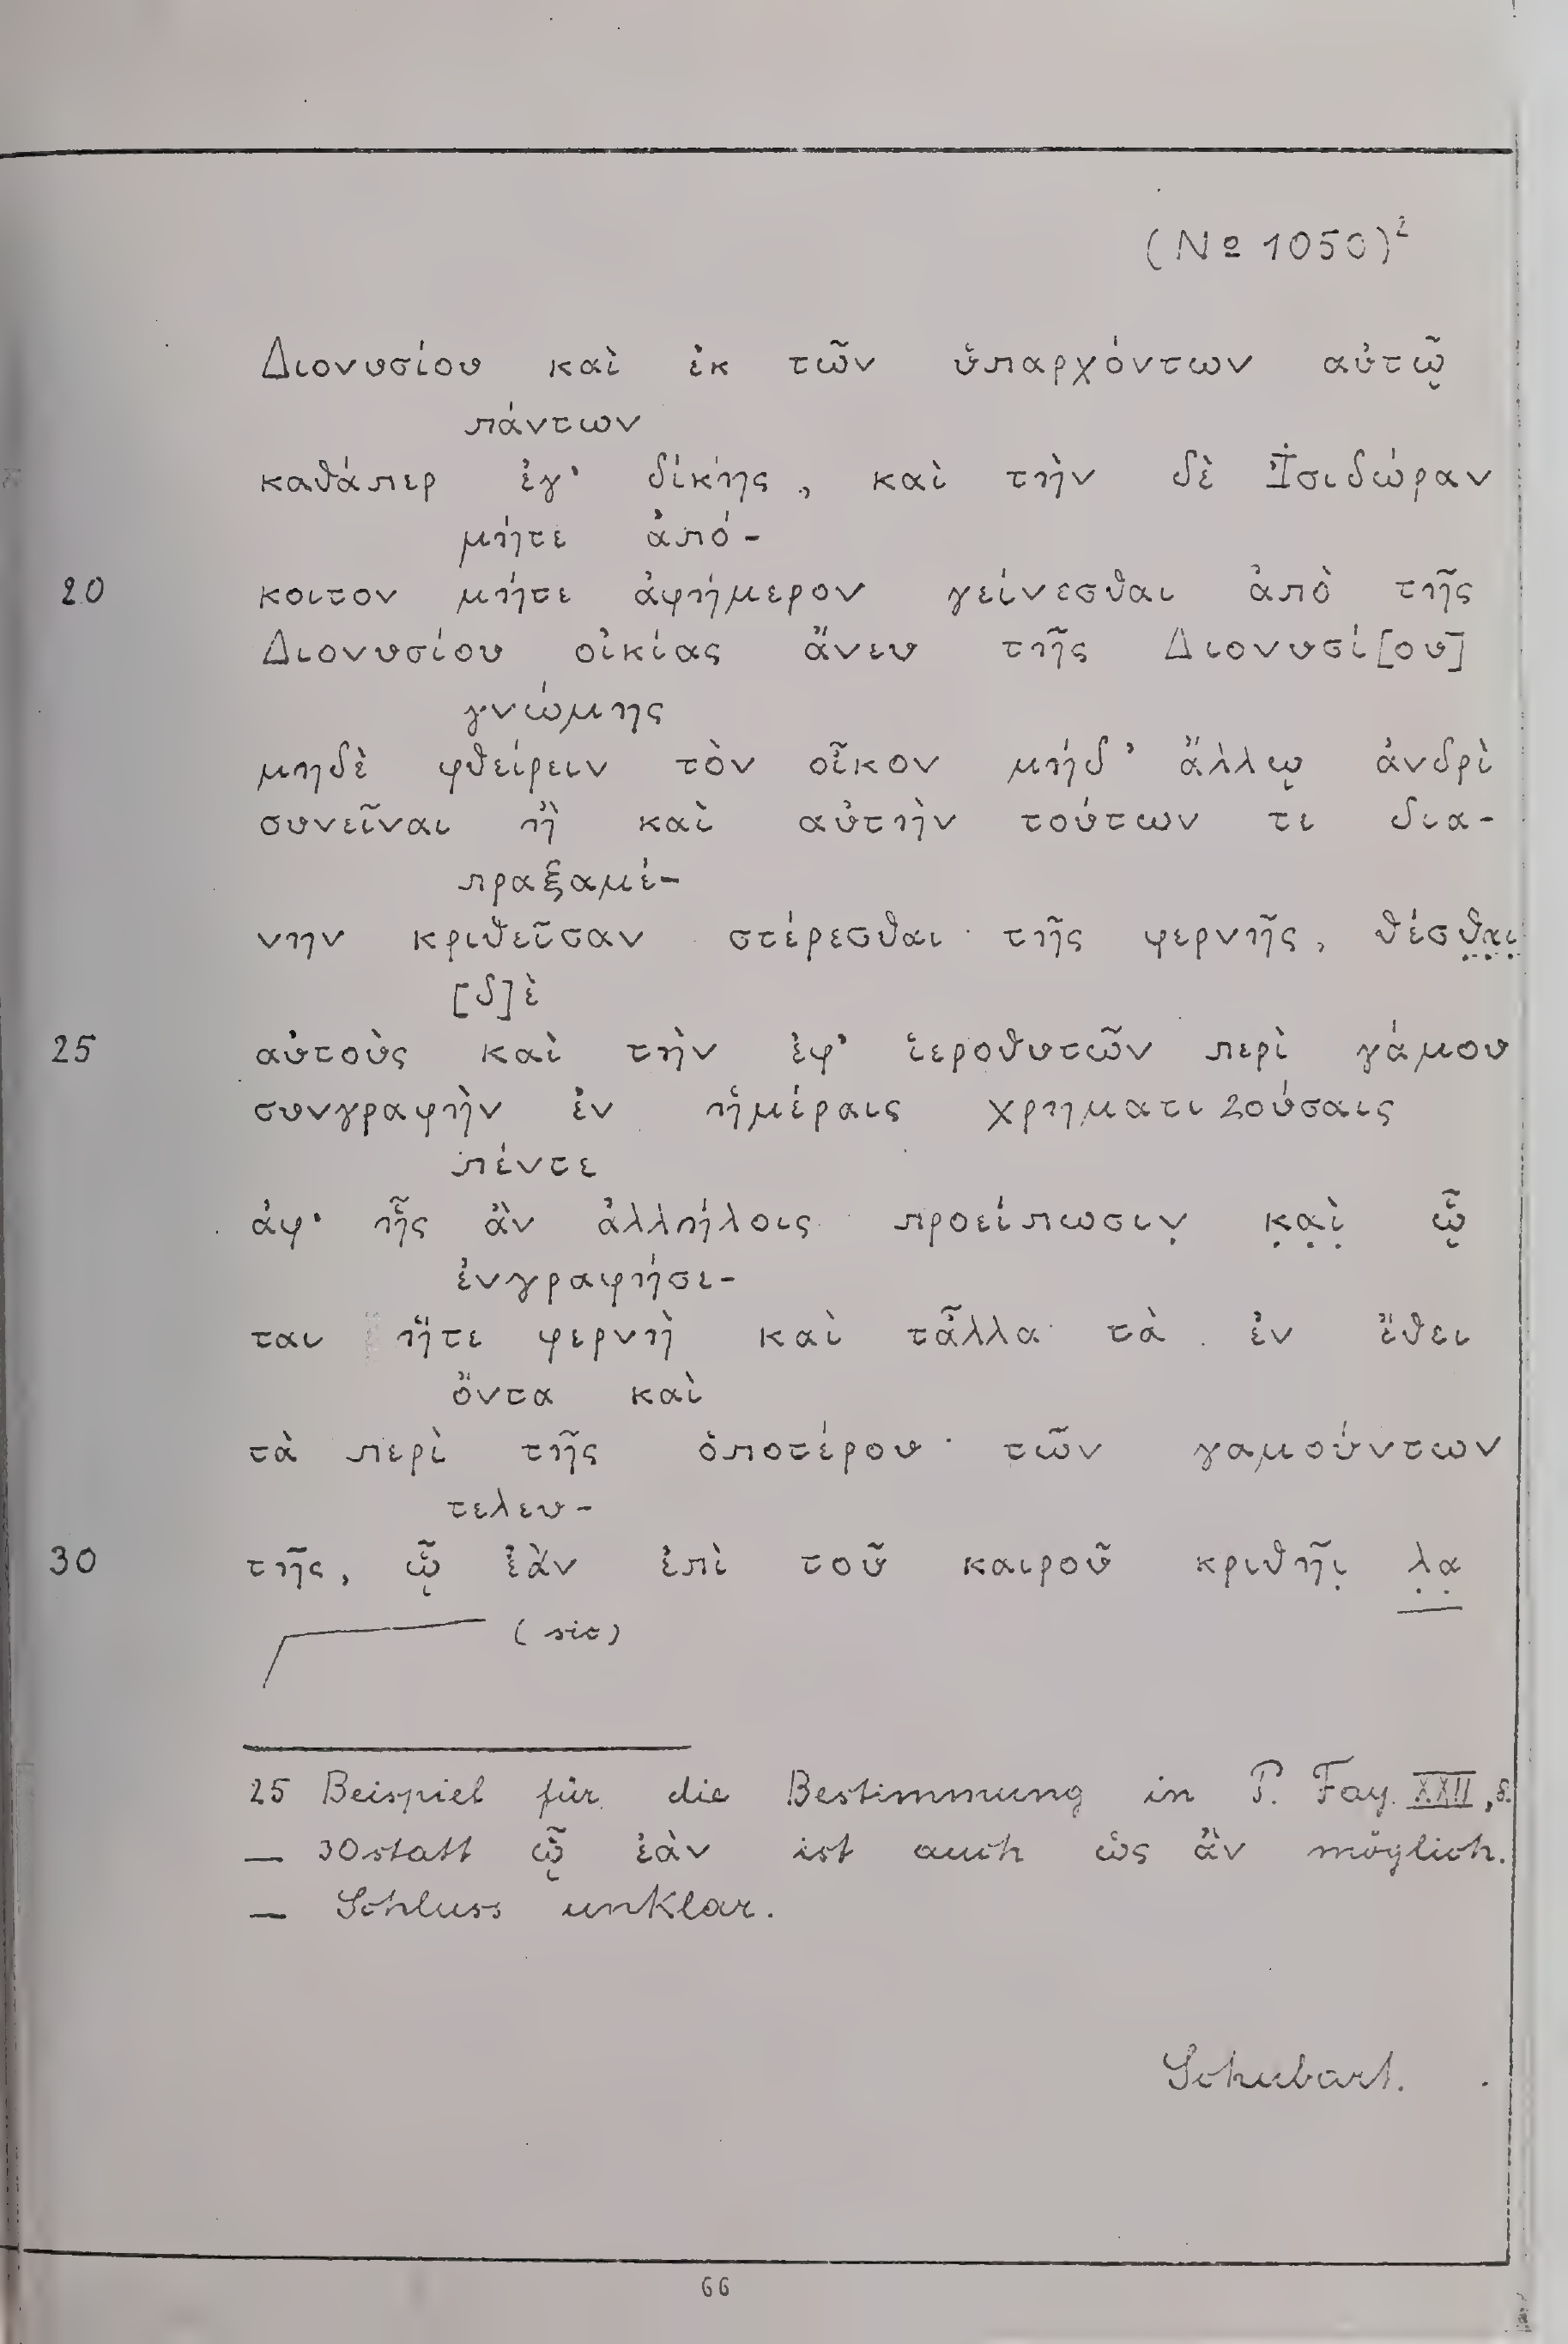 (№ 1050)²
Διονυσίου καὶ ἐκ τῶν ὑπαρχόντων αὐτῷ
πάντων
καθάπερ ἐγ' δίκης, καὶ τὴν δὲ Ἰσιδώραν
μήτε ἀπό-
20 κοιτον μήτε ἀφήμερον γείνεσθαι ἀπὸ τῆς
Διονυσίου οἰκίας ἄνευ τῆς Διονυσί[ου]
γνώμης
μηδὲ φθείρειν τὸν οἶκον μήδ' ἄλλῳ ἀνδρὶ
συνεῖναι ἢ καὶ αὐτὴν τούτων τι δια-
πραξαμέ-
νην κριθεῖσαν στέρεσθαι τῆς φερνῆς, θέσθ̣α̣ι̣
[δ]ὲ
25 αὐτοὺς καὶ τὴν ἐφ' ἱεροθυτῶν περὶ γάμου
συνγραφὴν ἐν ἡμέραις χρηματιζούσαις
πέντε
ἀφ' ἧς ἂν ἀλλήλοις προείπωσιν̣ κ̣α̣ὶ̣ ᾧ
ἐνγραφήσε-
ται ἥτε φερνὴ καὶ τἆλλα τὰ ἐν ἔθει
ὄντα καὶ
τὰ περὶ τῆς ὁποτέρου τῶν γαμούντων
τελευ-
30 τῆς, ᾧ ἐὰν ἐπὶ τοῦ καιροῦ κριθῆι̣ λ̣α̣
(sic)
25 Beispiel für die Bestimmung in P. Fay. XXII, 5.
— 30 statt ᾧ ἐὰν ist auch ὡς ἂν möglich.
— Schluss unklar.
Schubart.
66